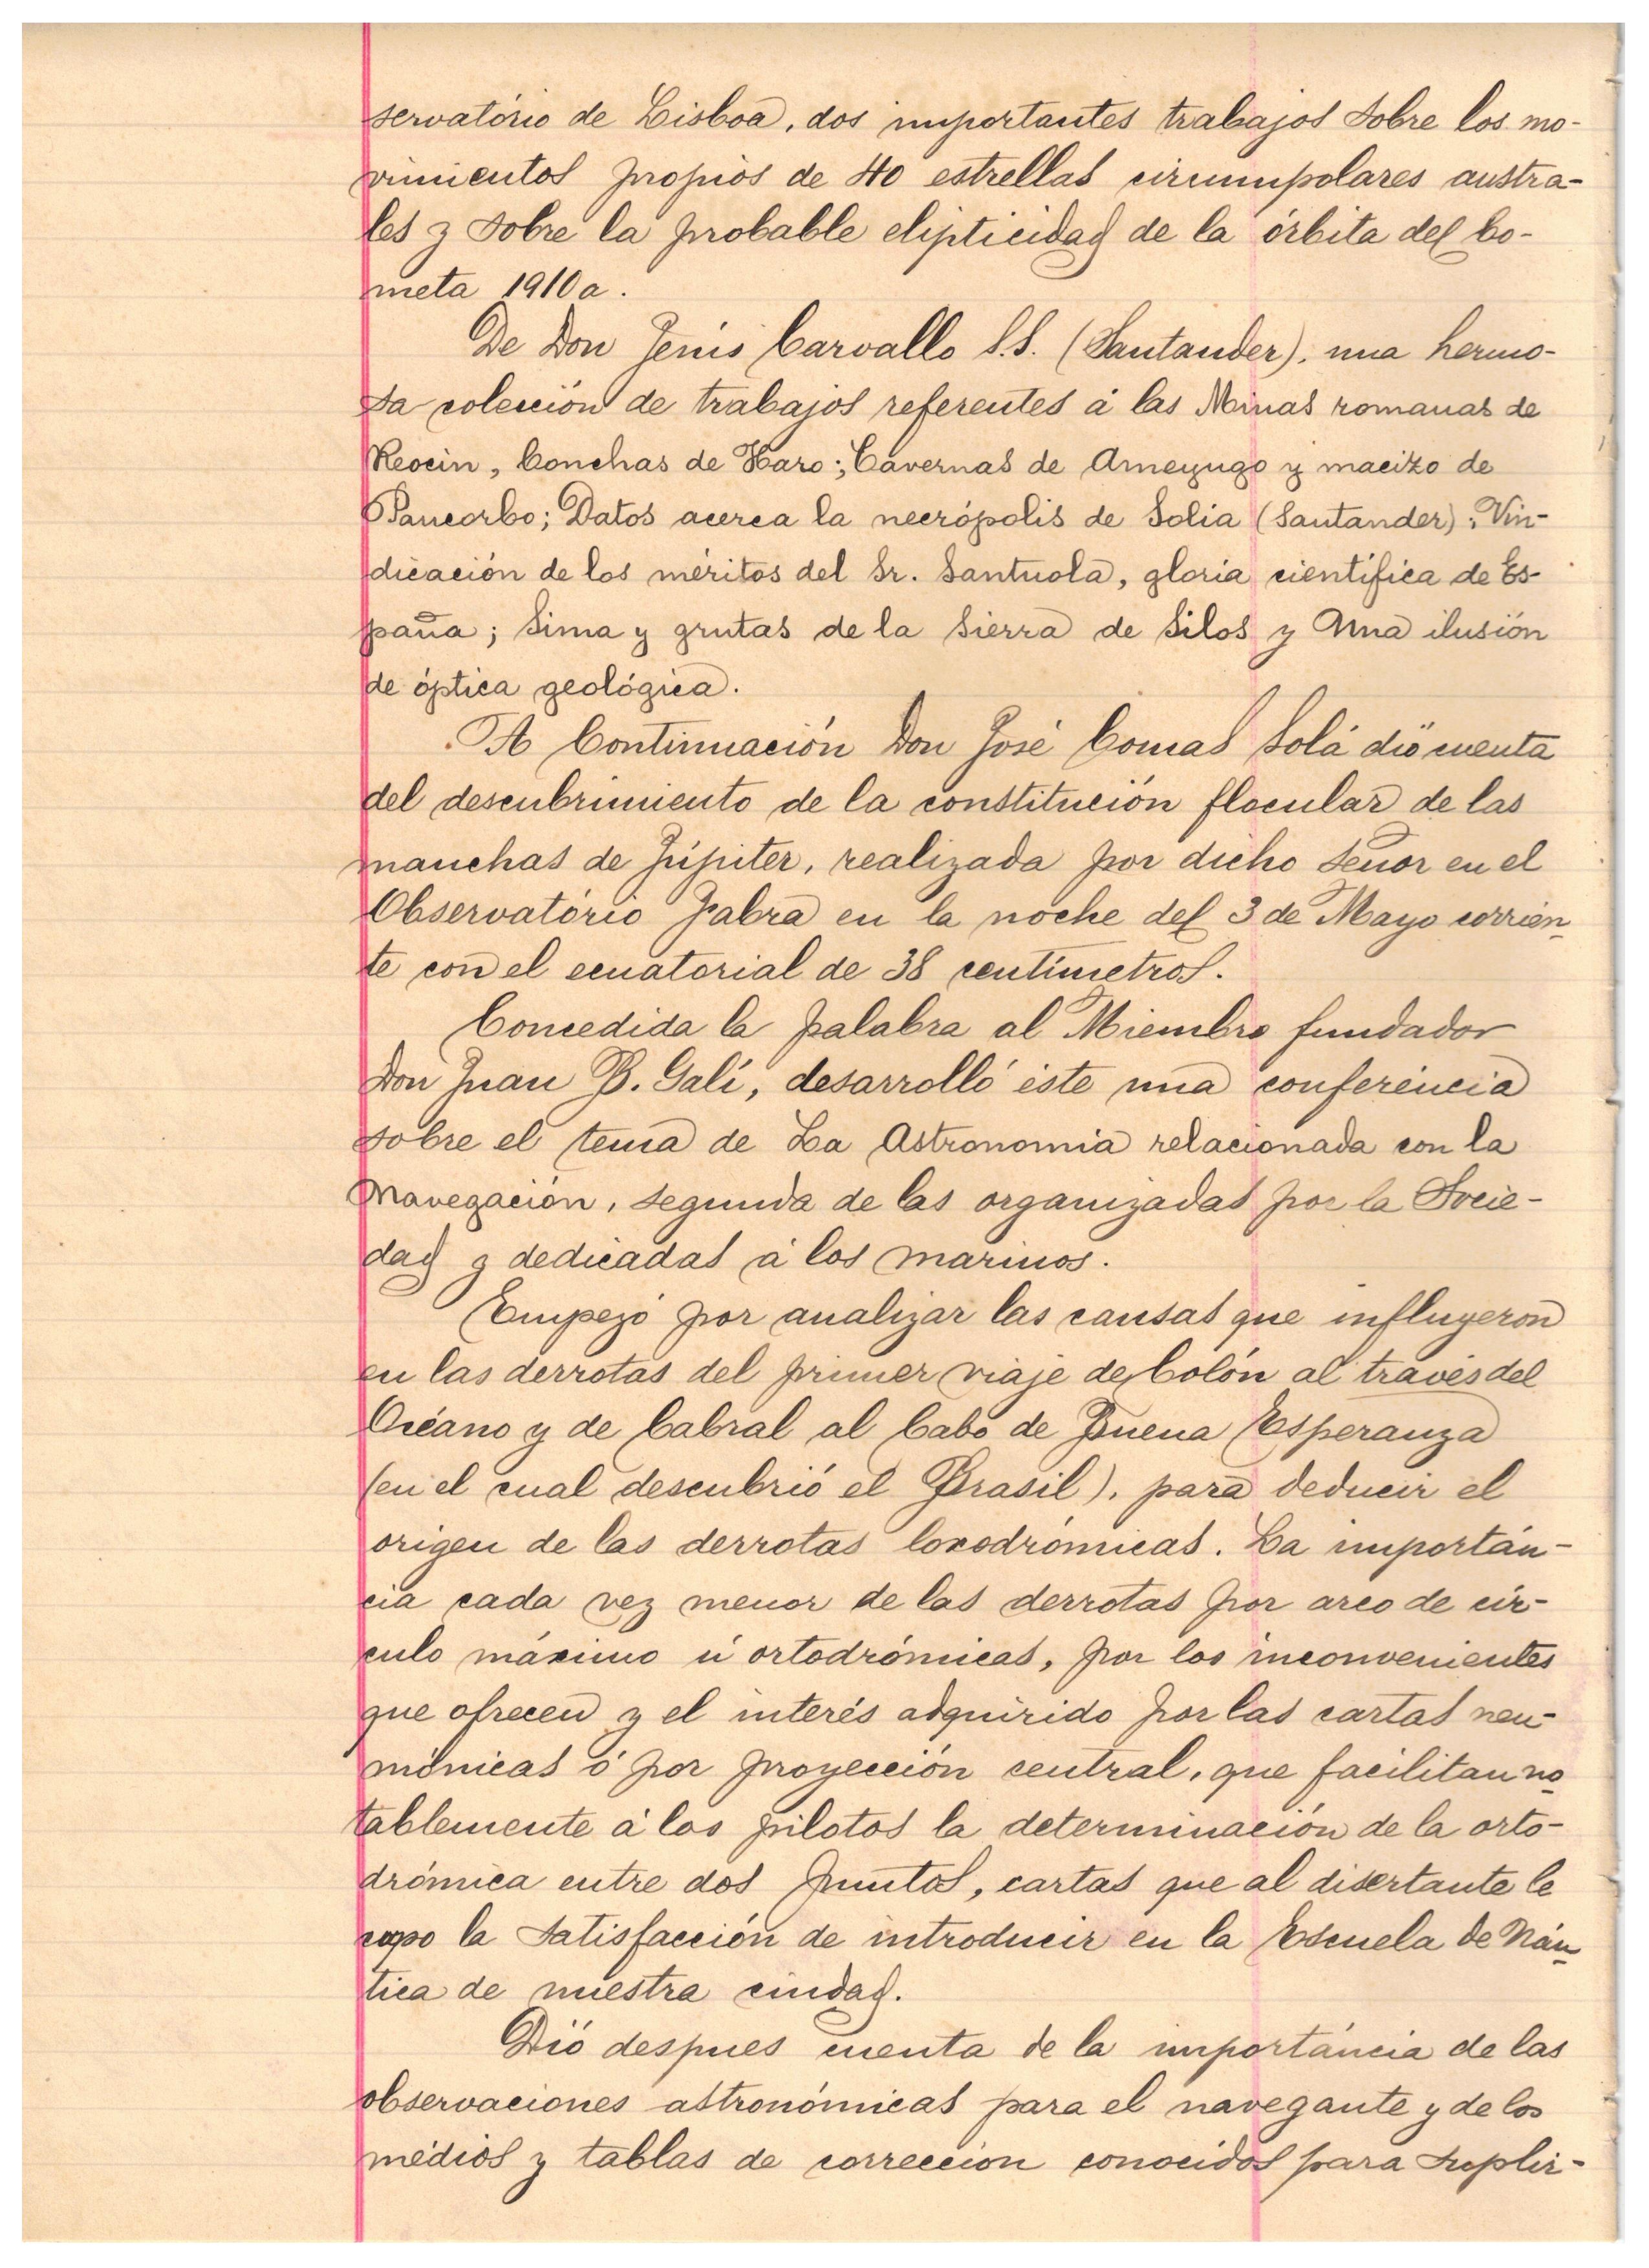 servatório de Lisboa, dos importantes trabajos sobre los mo-
vimientos propios de 40 estrellas circumpolares austra-
les y sobre la probable elipticidad de la órbita del Co-
meta 1910a.
De Don Jesús Carvallo S.S. (Santander), una hermo-
sa colección de trabajos referentes á las Minas romanas de
Reocín, Conchas de Haro; Cavernas de Ameyugo y macizo de
Pancorbo; Datos acerca la necrópolis de Solia (Santander); Vin-
dicación de los méritos del Sr. Santuola, gloria científica de Es-
paña; Sima y grutas de la Sierra de Silos y Una ilusión
de óptica geológica.
A Continuación Don José Comas Solá dió cuenta
del descubrimiento de la constitución flocular de las
manchas de Júpiter, realizada por dicho Señor en el
Observatório Fabra en la noche del 3 de Mayo corrien-
te con el ecuatorial de 38 centímetros.
Concedida la palabra al Miembro fundador
Don Juan B. Galí, desarrolló éste una conferéncia
sobre el tema de La Astronomia relacionada con la
Navegación, segunda de las organizadas por la Socie-
dad y dedicadas á los marinos.
Empezó por analizar las causas que influyeron
en las derrotas del primer viaje de Colón al través del
Océano y de Cabral al Cabo de Buena Esperanza
(en el cual descubrió el Brasil), para deducir el
origen de las derrotas loxodrómicas. La importán-
cia cada vez menor de las derrotas por arco de cír-
culo máximo ú ortodrómicas, por los inconvenientes
que ofrecen y el interés adquirido por las cartas neu-
mónicas ó por proyección central, que facilitan no-
tablemente á los pilotos la determinación de la orto-
drómica entre dos puntos, cartas que al disertante le
cupo la satisfacción de introducir en la Escuela de Náu-
tica de nuestra ciudad.
Dió despues cuenta de la importáncia de las
observaciones astronómicas para el navegante y de los
médios y tablas de corrección conocidos para suplir-